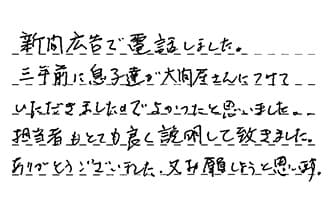 新聞広告で電話しました。
三年前に息子達が大間屋さんにつけて
いただきましたのでよかったと思いました。
担当者もとても良く説明して致きました。
ありがとうございました、又お願しようと思い〼。